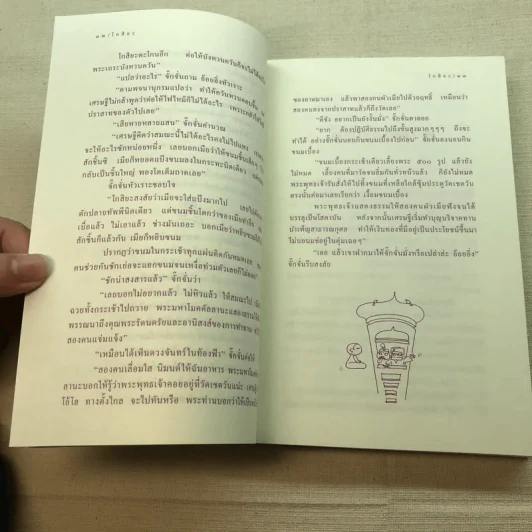 ๓๓/โกสิยะ
โกสิยะตะโกนอีก ต่อให้บังหวนควันก็
พระเถระบังหวนควัน"
"แปลว่าอะไร" จั๊กจั่นถาม อ้อยอิ่งหัวเราะ
"ตามพจนานุกรมแปลว่า ทำให้ควันหวน
เศรษฐีไม่กล้าพูดว่าต่อให้ไฟไหม้ก็ไม่ได้อะไร เพราะ
ปราสาทของตัวไปเลย"
"เสียพวกหลายแสน" จั๊กจั่นคำนวณ
"เศรษฐีคิดว่าสมณะนี้ไม่ได้อะไรคงไม่ไปแหง
จะให้อะไรซักหน่อยหนึ่ง เลยบอกเมียว่าให้ขนมชิ้น
สักชิ้นซิ เมียก็หยอดแป้งขนมลงในกระทะนิดเดียว
กลับเป็นชิ้นใหญ่ พองโตเต็มถาดเลย"
จั๊กจั่นหัวเราะชอบใจ
"โกสิยะสงสัยว่าเมียจะใส่แป้งมากไป เลย
ตักปลายทัพพีนิดเดียว แต่ขนมชิ้นโตกว่าของเมีย
เบื่อแล้ว ไม่เอาแล้ว ช่างมันเถอะ บอกเมียว่าหยิบ
สักชิ้นก็แล้วกัน เมียก็หยิบขนม
ปรากฏว่าขนมในกระเช้าทุกแผ่นติดกันหมด
คนช่วยกันชักเย่อจะแยกขนมจนเหงื่อท่วมตัวเลยก็ไม่
"ชักน่าสงสารแล้ว" จั๊กจั่นว่า
"เลยบอกไม่อยากแล้ว ไม่หิวแล้ว ให้สมณะไป
ฉวยทั้งกระเช้าไปถวาย พระมหาโมคคัลลานะแสดงธรรม
พรรณนาถึงคุณพระรัตนตรัยและอานิสงส์ของการทำทาน
สองคนแช่มแจ้ง"
"เหมือนได้เห็นดวงจันทร์ในท้องฟ้า" จั๊กจั่นต่อ
"สองคนเลื่อมใส นิมนต์ให้ฉันอาหาร พระมหาโมคคัล
ลานะบอกให้รู้ว่าพระพุทธเจ้าคอยอยู่ที่วัดเชตวันแน่ะ
โอ้โฮ ทางตั้งไกล จะไปทันหรือ พระท่านบอกว่าให้
โกสิยะ/๓๓
ของอาตมาเอง แล้วพาสองคนผัวเมียไปด้วยฤทธิ์ เหมือนว่า
สองคนลงจากปราสาทแล้วก็ถึงวัดเลย"
"ดีจัง อยากเป็นยังงั้นมั่ง" จั๊กจั่นตาลอย
"ยาก ต้องปฏิบัติธรรมไปถึงขั้นสูงมากๆๆๆ ถึงจะ
ทำได้ อย่างจั๊กจั่นนอนกับขนมเบื้องไปก่อน" จั๊กจั่นลงนอนกับ
ขนมเบื้อง
"ขนมเบื้องกระเช้าเดียวเลี้ยงพระ ๕๐๐ รูป แล้วยัง
ไม่หมด เลี้ยงคนที่มาวัดจนอิ่มกันทั่วหน้าแล้ว ก็ยังไม่หมด
พระพุทธเจ้ารับสั่งให้ไปทิ้งขนมที่เหลือใกล้ซุ้มประตูวัดเชตวัน
ตรงนั้นต่อมาเลยเรียกว่า เงื้อมขนมเบื้อง
พระพุทธเจ้าแสดงธรรมให้สองคนผัวเมียฟังจนได้
บรรลุเป็นโสดาบัน หลังจากนั้นเศรษฐีเริ่มทำบุญบริจาคทาน
บำเพ็ญสาธารณกุศล ทำให้เงินทองที่มีอยู่เป็นประโยชน์ขึ้นมา
ไม่แอบแช่อยู่ในตุ่มเฉยๆ"
"เฮ แล้วเขาฝากมาให้จั๊กจั่นมั่งหรือเปล่าล่ะ อ้อยอิ่ง"
จั๊กจั่นรีบสงสัย